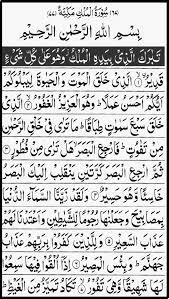 (٦٧) سُوْرَةُ الْمُلْكِ مَكِّيَّةٌ (٧٧)
بِسْمِ اللهِ الرَّحْمٰنِ الرَّحِيْمِ
تَبٰرَكَ الَّذِيْ بِيَدِهِ الْمُلْكُ وَهُوَ عَلٰى كُلِّ شَيْءٍ
قَدِيْرُ ۙ الَّذِيْ خَلَقَ الْمَوْتَ وَالْحَيٰوةَ لِيَبْلُوَكُمْ
اَيُّكُمْ اَحْسَنُ عَمَلًا ؕ وَهُوَ الْعَزِيْزُ الْغَفُوْرُ الَّذِيْ
خَلَقَ سَبْعَ سَمٰوٰتٍ طِبَاقًا ؕ مَا تَرٰى فِيْ خَلْقِ الرَّحْمٰنِ
مِنْ تَفٰوُتٍ ؕ فَارْجِعِ الْبَصَرَ ۙ هَلْ تَرٰى مِنْ فُطُوْرٍ
ثُمَّ ارْجِعِ الْبَصَرَ كَرَّتَيْنِ يَنْقَلِبْ اِلَيْكَ الْبَصَرُ
خَاسِئًا وَّهُوَ حَسِيْرٌ وَلَقَدْ زَيَّنَّا السَّمَآءَ الدُّنْيَا
بِمَصَابِيْحَ وَجَعَلْنٰهَا رُجُوْمًا لِّلشَّيٰطِيْنِ وَاَعْتَدْنَا لَهُمْ
عَذَابَ السَّعِيْرِ وَلِلَّذِيْنَ كَفَرُوْا بِرَبِّهِمْ عَذَابُ
جَهَنَّمَ ؕ وَبِئْسَ الْمَصِيْرُ اِذَآ اُلْقُوْا فِيْهَا سَمِعُوْا
لَهَا شَهِيْقًا وَّهِيَ تَفُوْرُ ۙ تَكَادُ تَمَيَّزُ مِنَ الْغَيْظِ